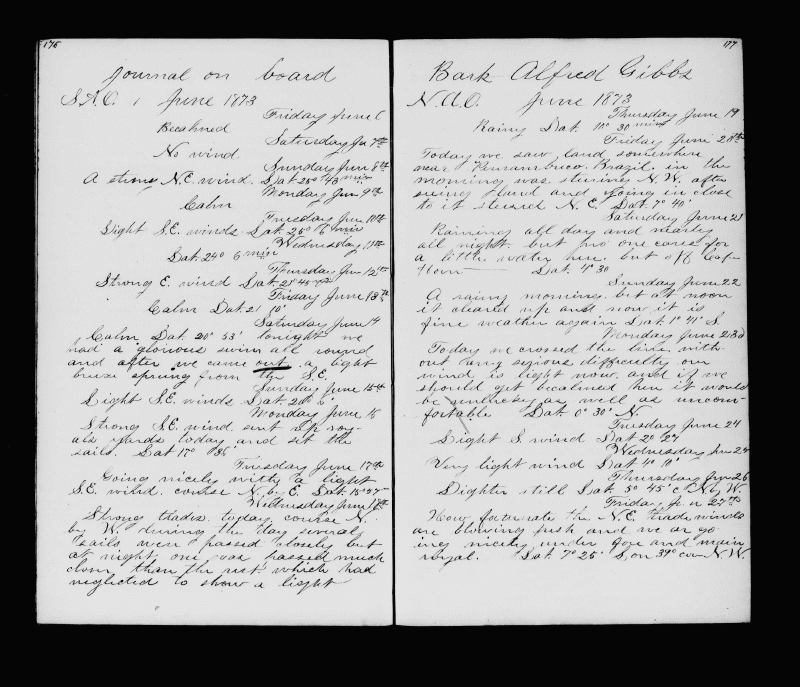 176
Journal on board
S.A.O. June 1873
Friday June 6
Becalmed
Saturday Jun 7th
No wind.
Sunday June 8th
A strong N.E. wind. Lat. 25° 43 min
Monday Jun 9th
Calm
Tuesday Jun 10th
Light S.E. winds Lat. 25° 6 min
Wednesday 11th
Lat. 24° 6 min
Thursday Jun 12th
Strong E. wind Lat. 21° 45
Friday June 13th
Calm Lat. 21 10'
Saturday June 14
Calm Lat. 20° 53' tonight we
had a glorious swim all round
and after we came out a light
breeze sprung from the S.E.
Sunday June 15th
Light S.E. winds Lat. 20° 6'
Monday June 16
Strong S.E. wind sent up roy-
als yards today and set the
sails. Lat 17° 36'
Tuesday June 17th
Going nicely with a light
S.E. wind. course N. by E. Lat. 15° 57'
Wednesday June 18th
Strong trades today course N.
by W. during the day several
sails were passed closely but
at night, one was passed much
closer than the rest which had
neglected to show a light
177
Bark Alfred Gibbs
N.A.O. June 1873
Thursday June 19
Rainy Lat. 10° 30 min
Friday June 20th
Today we saw land somewhere
near Pernambuco Brazil in the
morning was steering N.W. after
seeing land and going in close
to it steared N.E. Lat. 7° 40'
Saturday June 21
Raining all day and nearly
all night but no one cares for
a little water here. but off Cap-
Horn — Lat. 4° 30
Sunday June 22
A rainy morning. but at noon
it cleared up and now it is
fine weather again Lat. 1° 41' S.
Monday June 23d
Today we crossed the line with-
out any serious difficulty our
wind is light now and if we
should get becalmed here it would
be unlucky as well as uncom-
fortable Lat. 0° 30' N.
Tuesday June 24
Light S. wind Lat 2° 27'
Wednesday Jun 25
Very light wind Lat 4° 10'
Thursday Jun 26
Lighter still Lat. 5° 45' c N by W.
Friday Jun 27th
How fortunate the N.E. trade winds
are blowing fresh and we are go-
ing nicely under fore and main
royal. Lat. 7° 25' Lon 39° cour N.W.